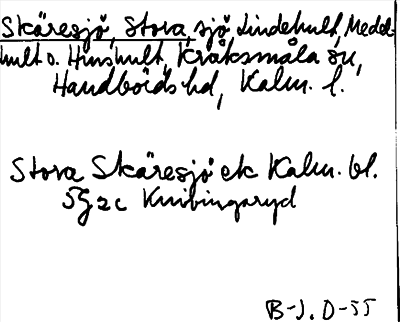 Skäresjö, Stora, sjö Lindehult, Medel-
hult o. Hinshult, Kråksmåla sn,
Handbörds hd, Kalm. l.
Stora Skäresjö ek Kalm. bl.
5G2c Knivingaryd
B-J. O-55